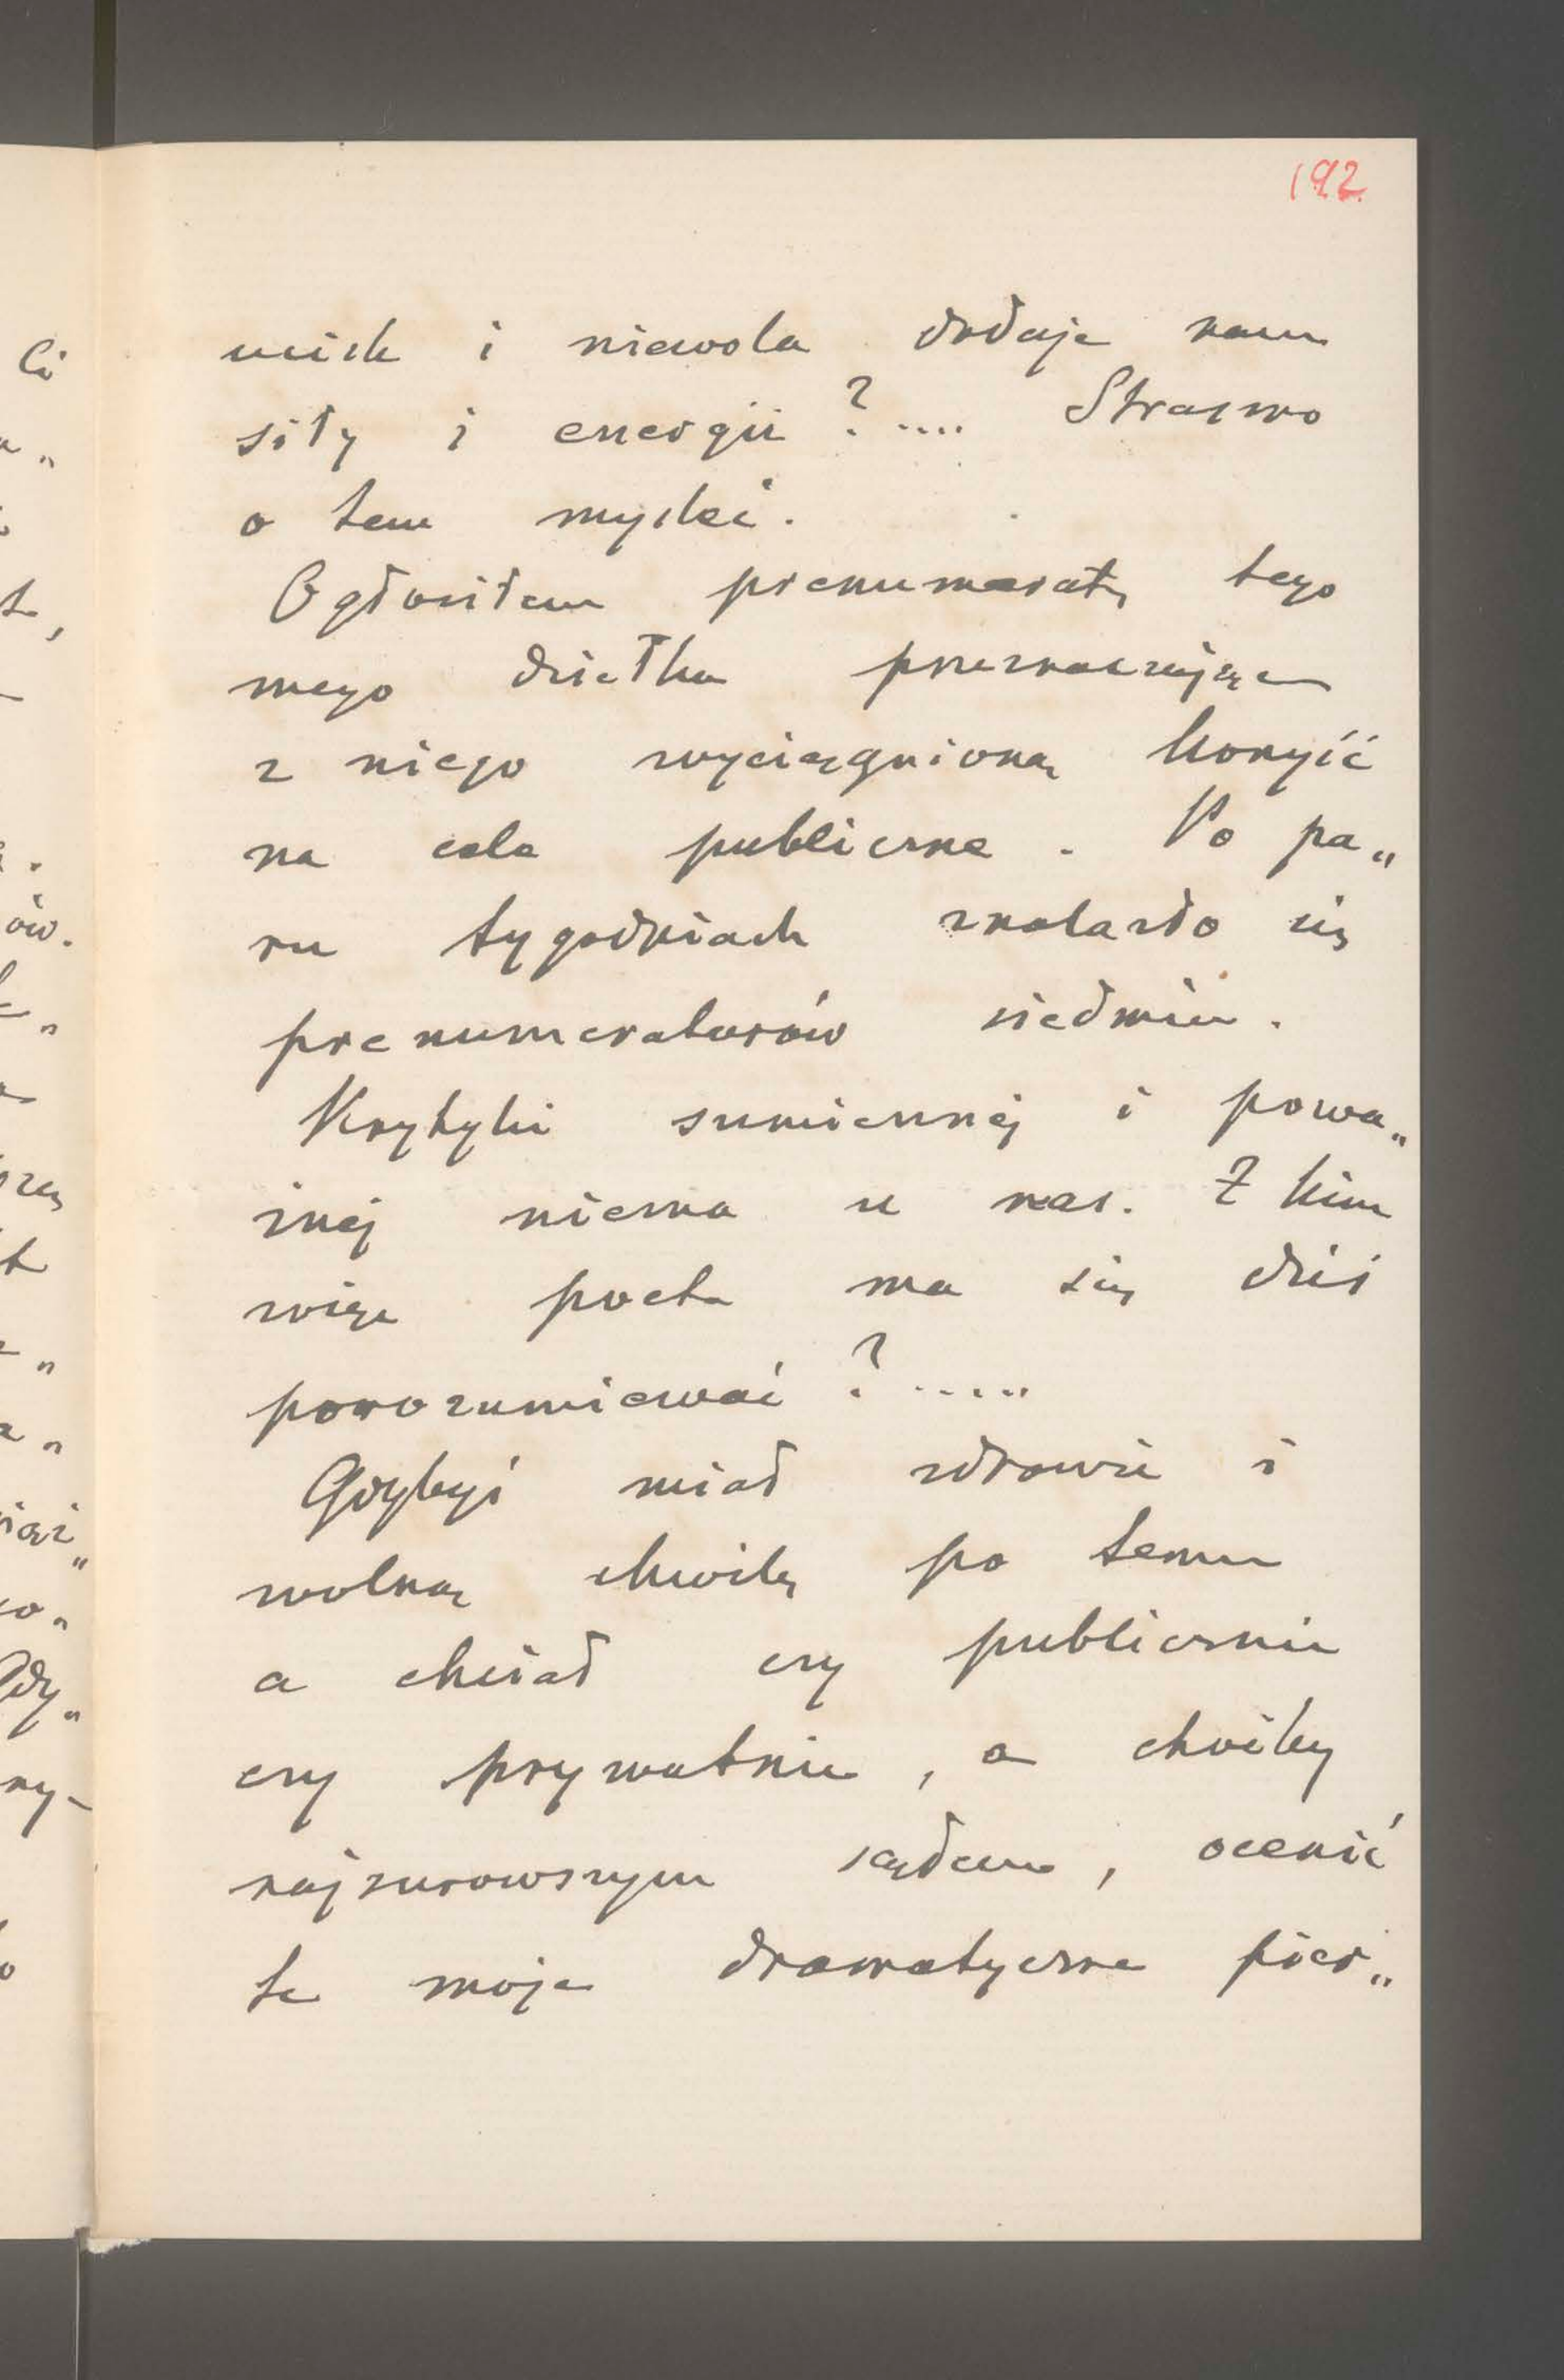 192.
ucisk i niewola dodaje nam
siły i energii ?.... Straszno
o tem myśleć.
Ogłosiłem prenumeratę tego
mego dziełka przeznaczając
z niego wyciągnioną korzyść
na cele publiczne. Po pa„
ru tygodniach znalazło się
prenumeratorów siedmiu.
Krytyki sumiennéj i powa„
żnéj niema u nas. Z kim
więc poeta ma się dziś
porozumiewać ?.....
Gdybyś miał zdrowie i
wolną chwilę po temu
a chciał czy publicznie
czy prywatnie, a choćby
najsurowszym sądem, ocenić
te moje dramatyczne pier„